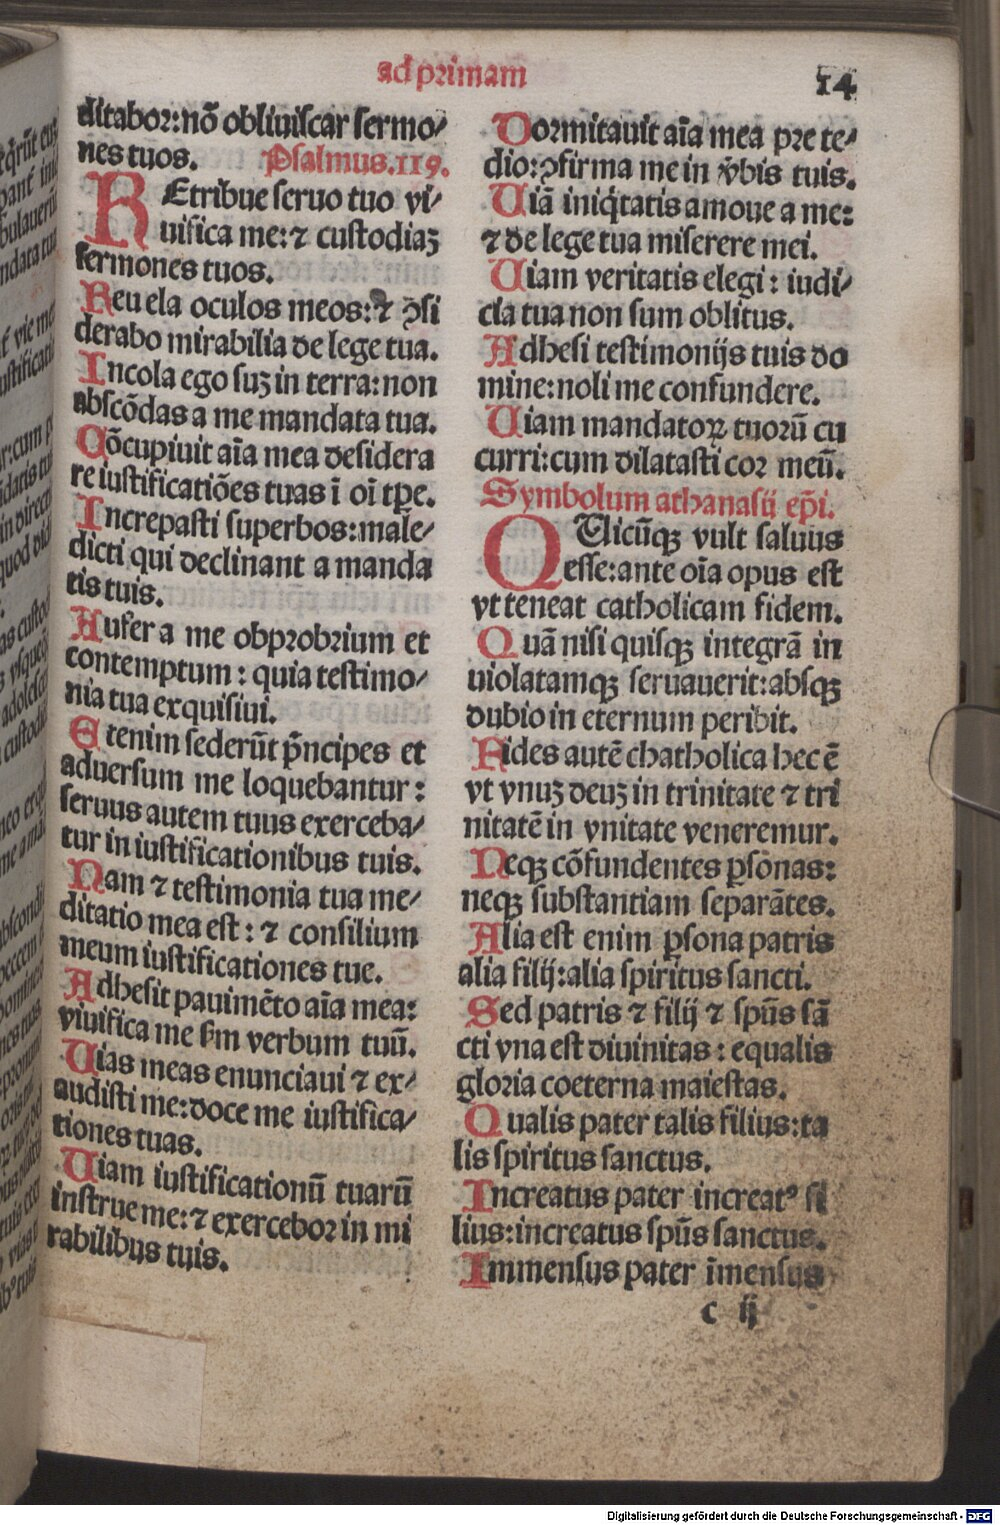 ad primam
14
ditabor:nō obliuiſcar ſermo⸗
nes tuos. Pſalmus.119.
REtribue ſeruo tuo vi⸗
uifica me:⁊ cuſtodiaꝫ
ſermones tuos.
Reuela oculos meos:⁊ ꝯſi
derabo mirabilia de lege tua.
Incola ego ſuꝫ in terra:non
abſcōdas a me mandata tua.
Cōcupiuit aīa mea deſidera
re iuſtificatiōes tuas ī oī tꝑe.
Increpaſti ſuperbos:male⸗
dicti qui declinant a manda
tis tuis.
Aufer a me obprobrium et
contemptum : quia teſtimo⸗
nia tua exquiſiui.
Etenim ſederūt pͥncipes et
aduerſum me loquebantur :
ſeruus autem tuus exerceba⸗
tur in iuſtificationibus tuis.
Nam ⁊ teſtimonia tua me⸗
ditatio mea eſt : ⁊ conſilium
meum iuſtificationes tue.
Adheſit pauimēto aīa mea:
viuifica me ſꝫm verbum tuū.
Uias meas enunciaui ⁊ ex⸗
audiſti me:doce me iuſtifica⸗
tiones tuas.
Uiam iuſtificationū tuarū
inſtrue me:⁊ exercebor in mi
rabilibus tuis.
Dormitauit aīa mea pre te⸗
dio:ꝯfirma me in v̄bis tuis.
Uiā iniq̇tatis amoue a me:
⁊ de lege tua miſerere mei.
Uiam veritatis elegi : iudi⸗
cia tua non ſum oblitus.
Adheſi teſtimonijs tuis do
mine:noli me confundere.
Uiam mandatoꝝ tuorū cu
curri:cum dilataſti cor meū.
Symbolum athanaſij ep̄i.
QUicūqꝫ vult ſaluus
eſſe:ante oīa opus eſt
vt teneat catholicam fidem.
Quā niſi quiſqꝫ integrā in
uiolatamqꝫ ſeruauerit:abſqꝫ
dubio in eternum peribit.
Fides autē chatholica hec ē
vt vnuꝫ deuꝫ in trinitate ⁊ tri
nitatē in vnitate veneremur.
Neqꝫ cōfundentes ꝑſonas:
neqꝫ ſubſtantiam ſeparātes.
Alia eſt enim ꝑſona patris
alia filij:alia ſpiritus ſancti.
Sed patris ⁊ filij ⁊ ſpūs ſā
cti vna eſt diuinitas : equalis
gloria coeterna maieſtas.
Qualis pater talis filius:ta
lis ſpiritus ſanctus.
Increatus pater increatꝰ fi
lius:increatus ſpūs ſanctus.
Immenſus pater īmenſus
c ij
Digitalisierung gefördert durch die Deutsche Forschungsgemeinschaft - DFG